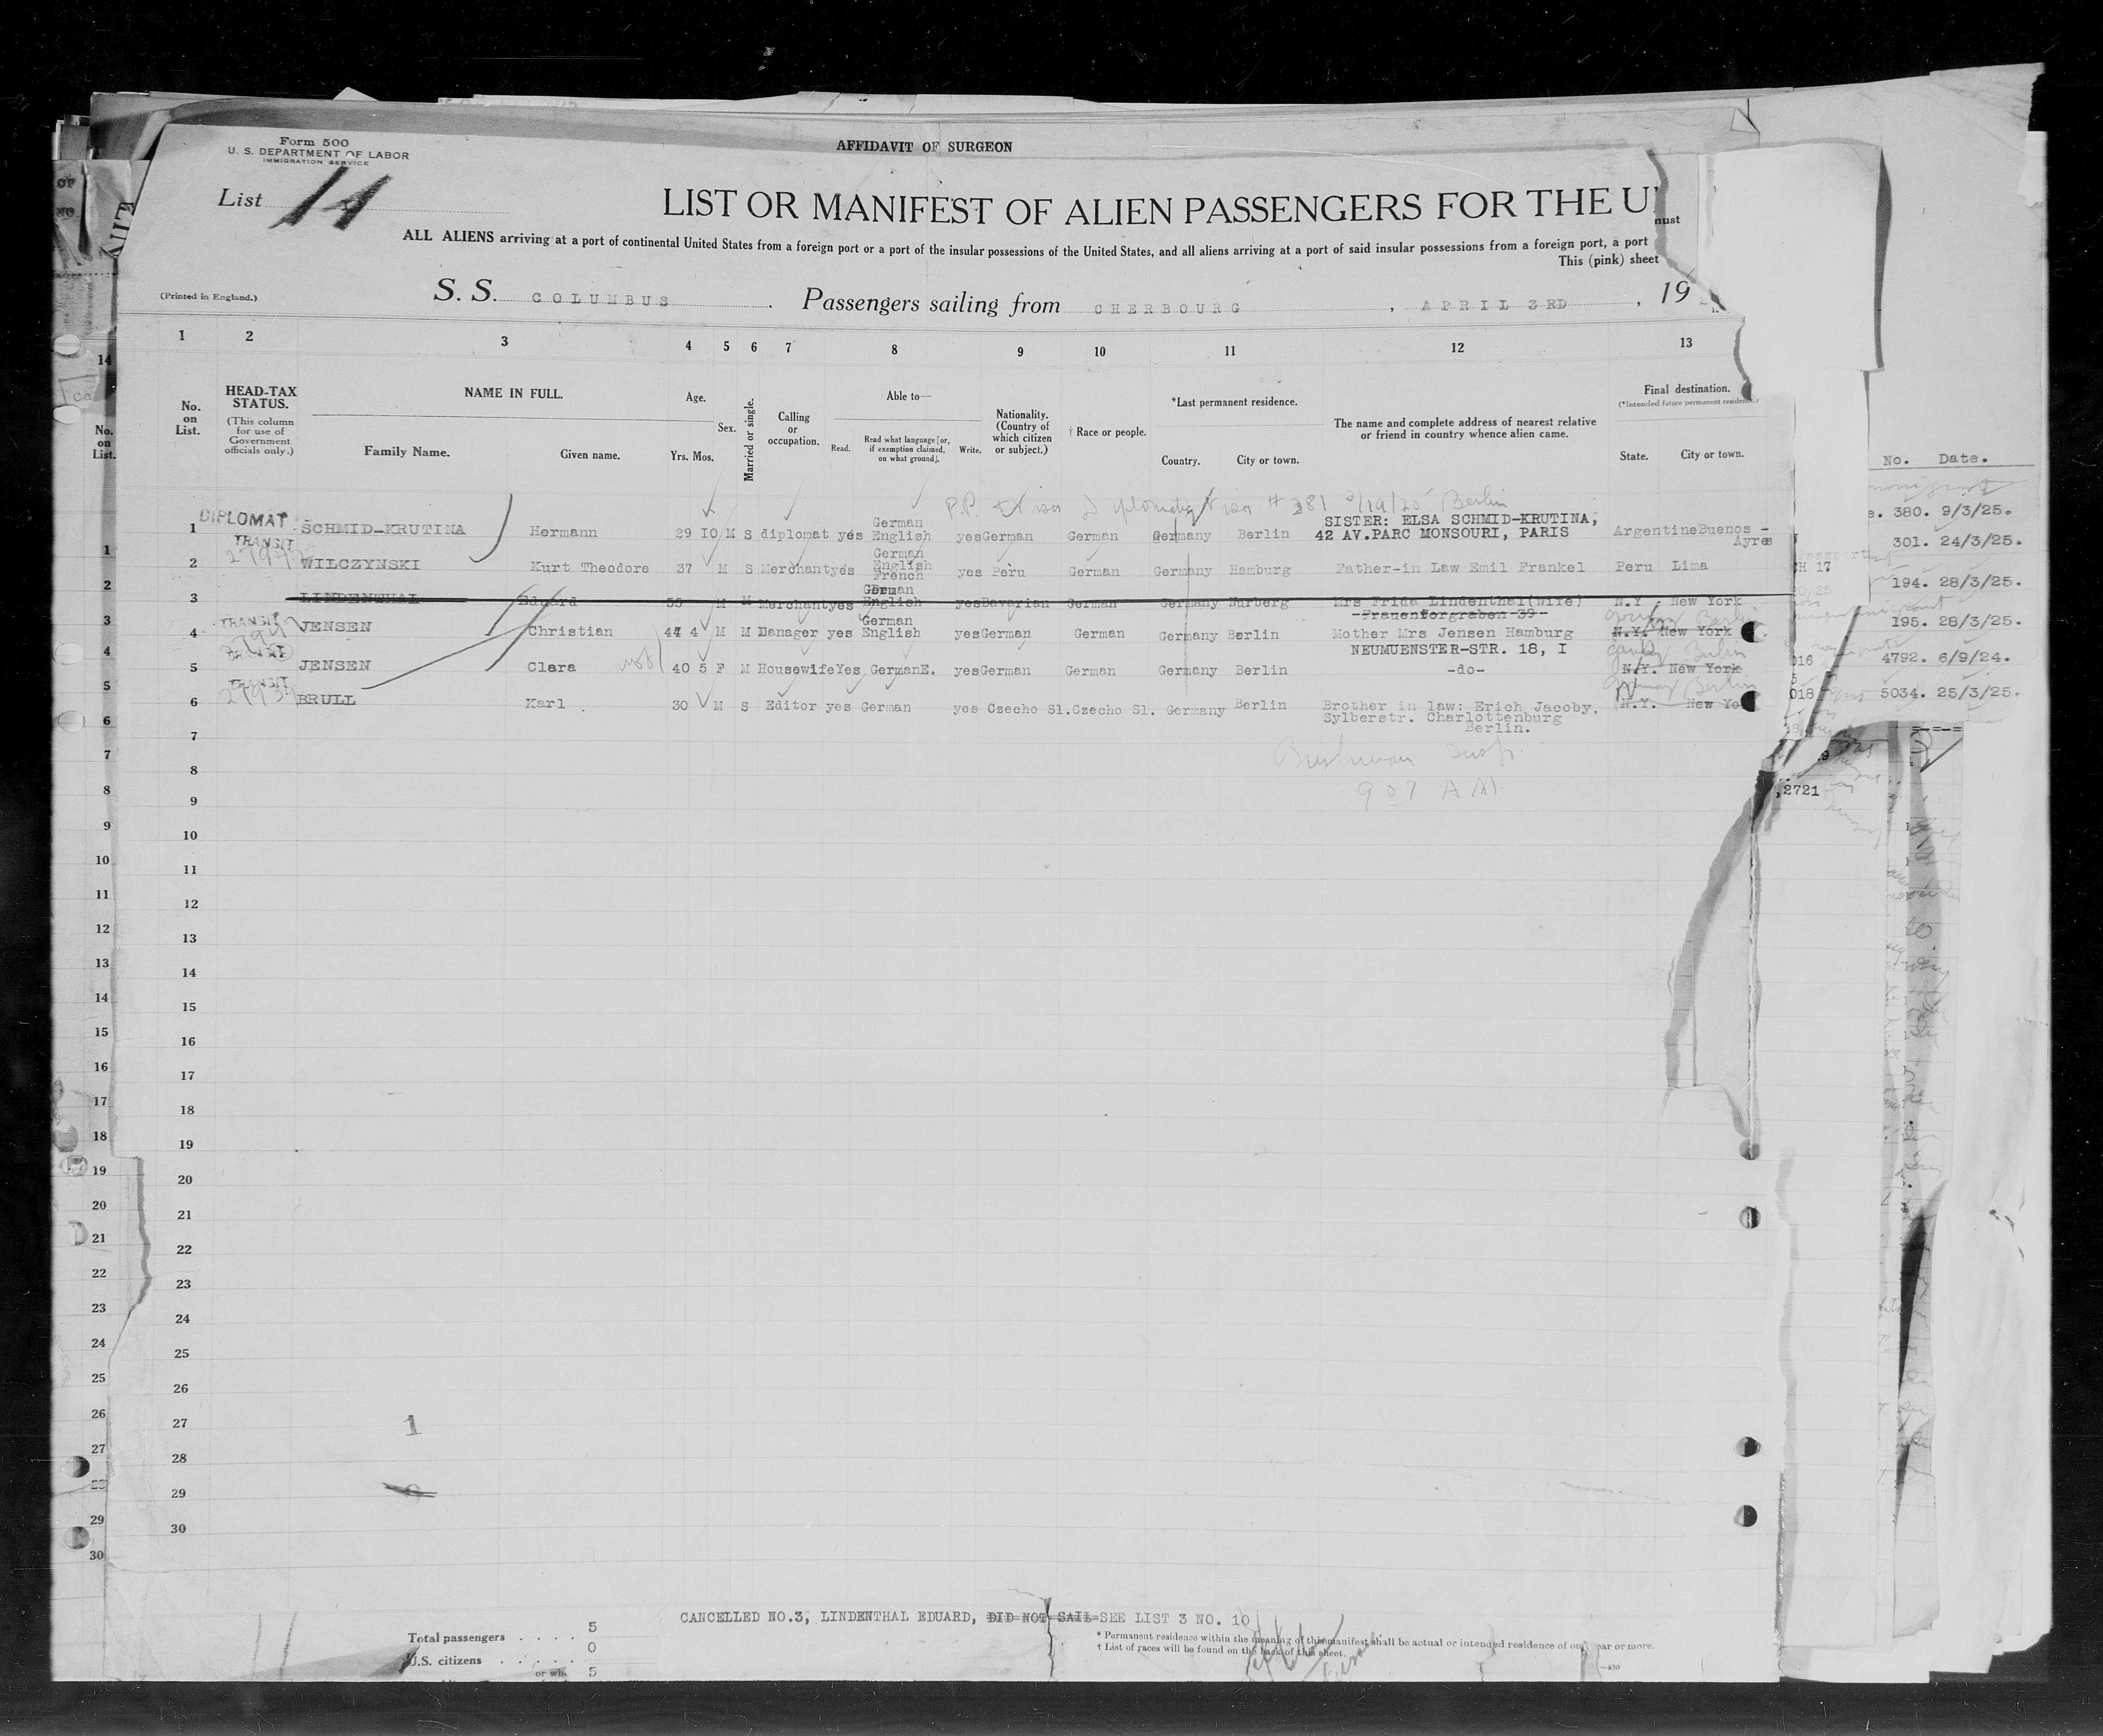 Form 500
U. S. DEPARTMENT OF LABOR
IMMIGRATION SERVICE
AFFIDAVIT OF SURGEON
List 14
LIST OR MANIFEST OF ALIEN PASSENGERS FOR THE U
ALL ALIENS arriving at a port of continental United States from a foreign port or a port of the insular possessions of the United States, and all aliens arriving at a port of said insular possessions from a foreign port, a port
This (pink) sheet
(Printed in England.)
S. S. COLUMBUS . Passengers sailing from CHERBOURG , APRIL 3RD , 19
1 2 3 4 5 6 7 8 9 10 11 12 13
No. on List.
HEAD-TAX STATUS.
(This column for use of Government officials only.)
NAME IN FULL.
Family Name. Given name.
Age.
Yrs. Mos.
Sex.
Married or single.
Calling or occupation.
Able to—
Read. Read what language [or, if exemption claimed, on what ground]. Write.
Nationality. (Country of which citizen or subject.)
† Race or people.
*Last permanent residence.
Country. City or town.
The name and complete address of nearest relative or friend in country whence alien came.
Final destination.
(*Intended future permanent residence.)
State. City or town.
No. Date.
# 381 3/19/25 Berlin
1 DIPLOMAT SCHMID-KRUTINA Hermann 29 10 M S diplomat yes German English yes German German Germany Berlin SISTER: ELSA SCHMID-KRUTINA, 42 AV.PARC MONSOURI, PARIS Argentine Buenos - Ayres
2 TRANSIT WILCZYNSKI Kurt Theodore 37 M S Merchant yes German English French yes Peru German Germany Hamburg Father-in Law Emil Frankel Peru Lima
3 LINDENTHAL Eduard 55 M M Merchant yes German English yes Bavarian German Germany Nurberg Mrs Frida Lindenthal(wife) N.Y. New York
-Frauentorgraben 39-
4 TRANSIT JENSEN Christian 44 4 M M Manager yes German English yes German German Germany Berlin Mother Mrs Jensen Hamburg N.Y. New York
NEUMUENSTER-STR. 18, I
5 TRANSIT JENSEN Clara 40 5 F M Housewife Yes German E. yes German German Germany Berlin -do- N.Y. New York
6 TRANSIT BRULL Karl 30 M S Editor yes German yes Czecho Sl. Czecho Sl. Germany Berlin Brother in law: Erich Jacoby, N.Y. New Yo
Sylberstr. Charlottenburg
Berlin.
907 AM
7
8
9
10
11
12
13
14
15
16
17
18
19
20
21
22
23
24
25
26
27
28
29
30
1
380. 9/3/25.
301. 24/3/25.
194. 28/3/25.
195. 28/3/25.
4792. 6/9/24.
5034. 25/3/25.
,2721
CANCELLED NO.3, LINDENTHAL EDUARD, DID NOT SAIL SEE LIST 3 NO. 10
Total passengers . . . . 5
U.S. citizens . . . . . 0
5
* Permanent residence within the meaning of this manifest shall be actual or intended residence of one year or more.
† List of races will be found on the back of this sheet.